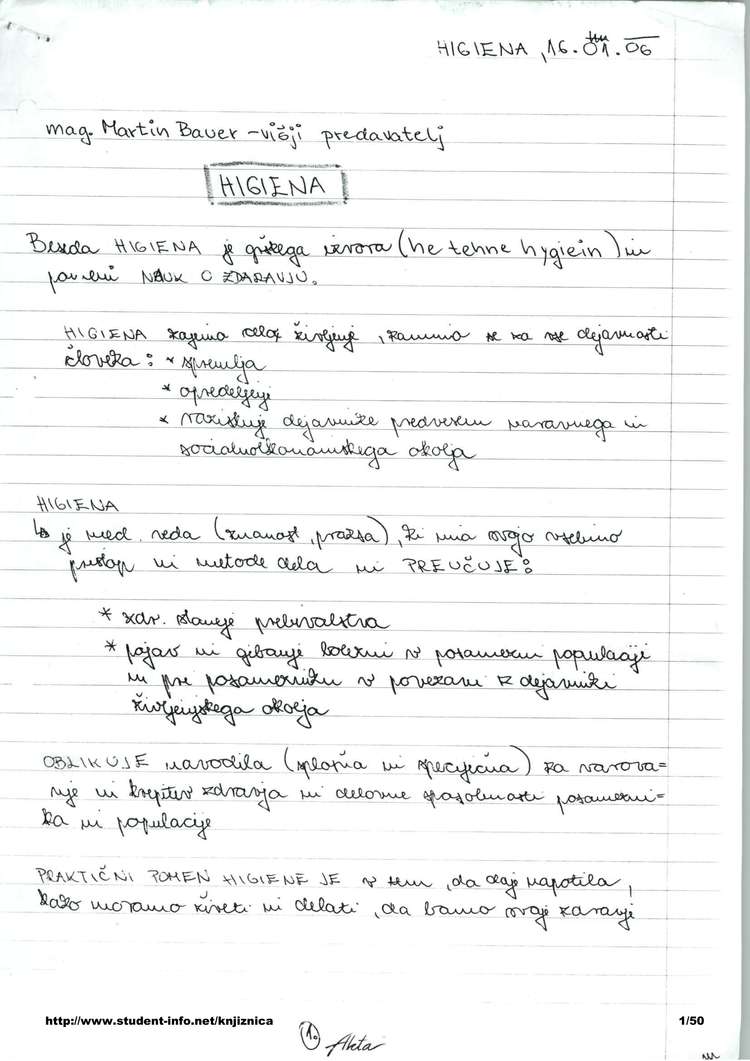 HIGIENA, 16. 01. 06
mag. Martin Bauer - višji predavatelj
HIGIENA
Beseda HIGIENA je grškega izvora (he tehne hygiein) in
pomeni NAUK O ZDARAVJU.
HIGIENA zajema celo življenje, zanima se za vse dejavnosti
človeka: * spremlja
* opredeljuje
* raziskuje dejavnike predvsem naravnega in
socialnoekonomskega okolja
HIGIENA
↳ je med. veda (znanost, praksa), ki ima svojo vsebino
pristop in metode dela in PREUČUJE:
* zdr. stanje prebivalstva
* pojav in gibanje bolezni v posamezni populaciji
in pri posamezniku v povezavi z dejavniki
življenjskega okolja
OBLIKUJE navodila (splošna in specifična) za varova=
nje in krepitev zdravja in delovne sposobnosti posamezni=
ka in populacije
PRAKTIČNI POMEN HIGIENE JE v tem, da daje napotila,
kako moramo živeti in delati, da bomo svoje zdravje
http://www.student-info.net/knjiznica
1/50
1.